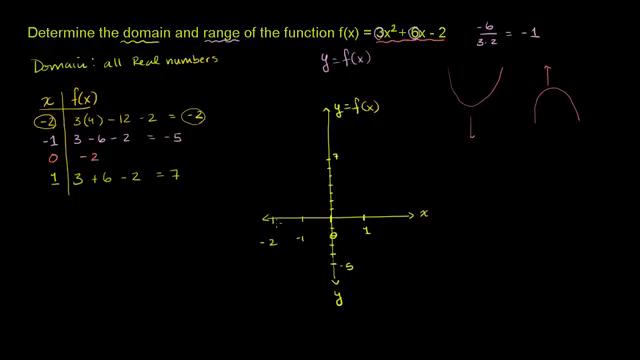 Determine the domain and range of the function f(x) = 3x² + 6x - 2
-6
3·2
= -1
Domain: all Real numbers
y = f(x)
x f(x)
-2 3(4) - 12 - 2 = -2
-1 3 - 6 - 2 = -5
0 -2
1 3 + 6 - 2 = 7
y = f(x)
7
x
-2 -1 0 1
-5
y